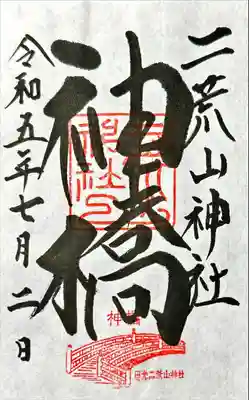 二荒山神社
神橋
令和五年七月二日
神橋
日光二荒山神社